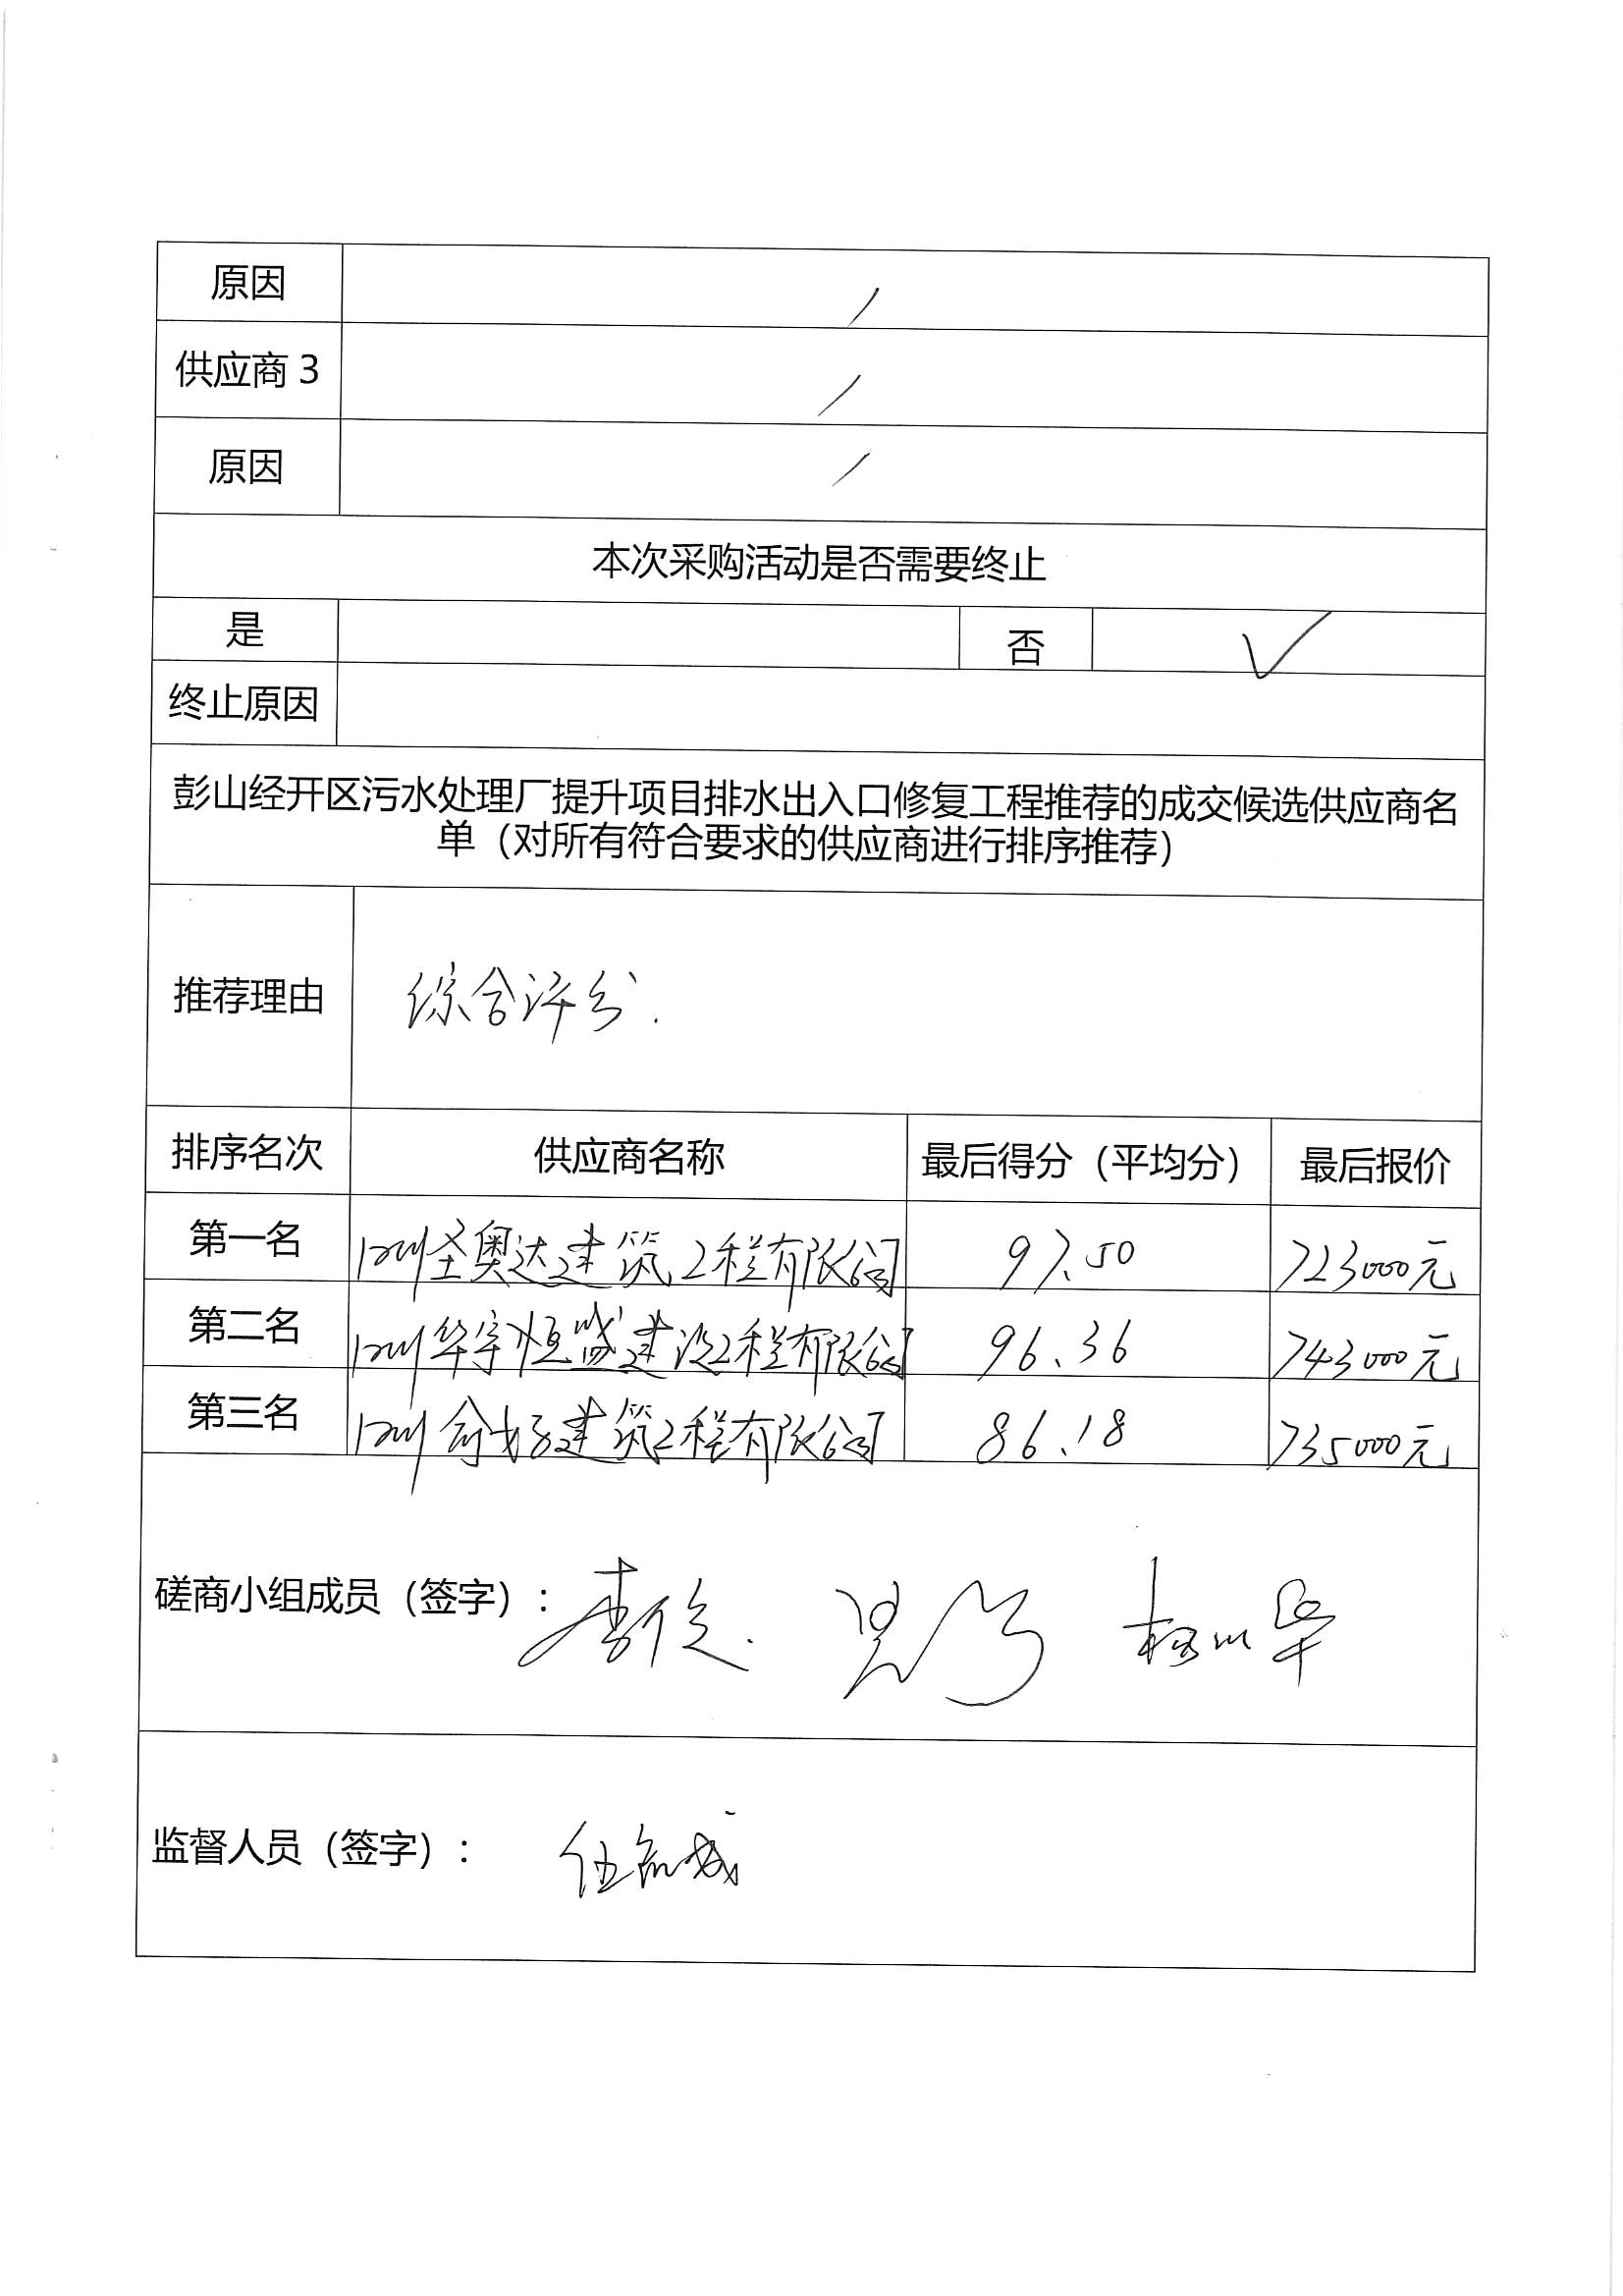 原因 /
供应商 3 /
原因 /
本次采购活动是否需要终止
是 否 ✓
终止原因
彭山经开区污水处理厂提升项目排水出入口修复工程推荐的成交候选供应商名
单（对所有符合要求的供应商进行排序推荐）
推荐理由 综合评分.
排序名次 供应商名称 最后得分（平均分） 最后报价
第一名 四川圣奥达建筑工程有限公司 97.50 723000元
第二名 四川华宇恒盛建设工程有限公司 96.36 743000元
第三名 四川 建筑工程有限公司 86.18 735000元
磋商小组成员（签字）：
监督人员（签字）：